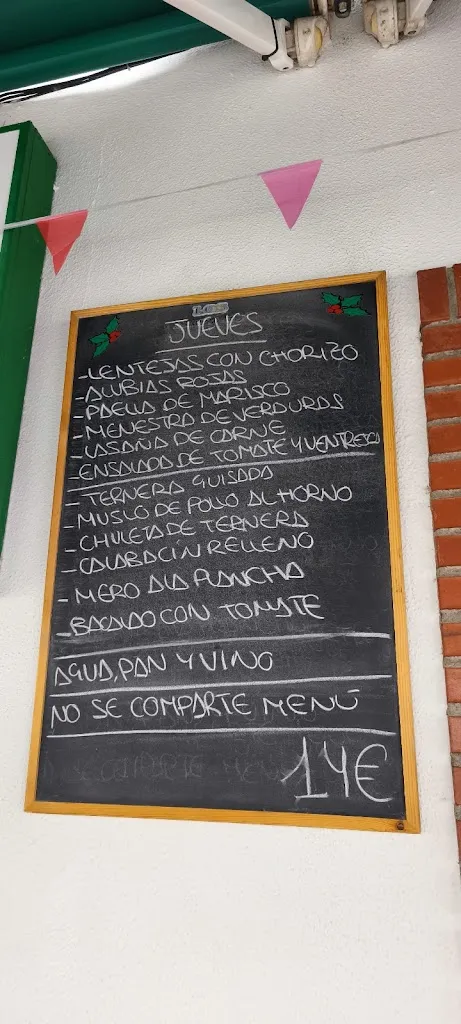 JUEVES
-LENTEJAS CON CHORIZO
-ALUBIAS ROSAS
-PAELLA DE MARISCO
-MENESTRA DE VERDURAS
-LASAÑA DE CARNE
-ENSALADA DE TOMATE Y VENTRESCA
-TERNERA GUISADA
-MUSLO DE POLLO AL HORNO
-CHULETA DE TERNERA
-CALABACIN RELLENO
-MERO A LA PLANCHA
-BACALAO CON TOMATE
AGUA, PAN Y VINO
NO SE COMPARTE MENÚ
14€